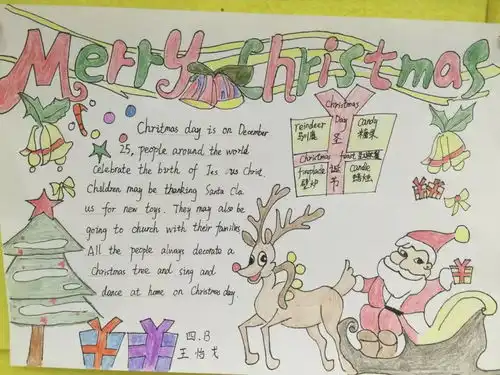 Merry Christmas
Christmas day is on December
25, people around the world
celebrate the birth of Jes us Christ.
Children may be thanking Santa Cla
us for new toys. They may also be
going to church with their families
All the people always decorate a
christmas tree and sing and
dance at home on Christmas day.
Christmas
Day
reindeer
驯鹿
圣
candy
糖果
Christmas
诞
fireplace
壁炉
节
candle
蜡烛
四.8
王怡